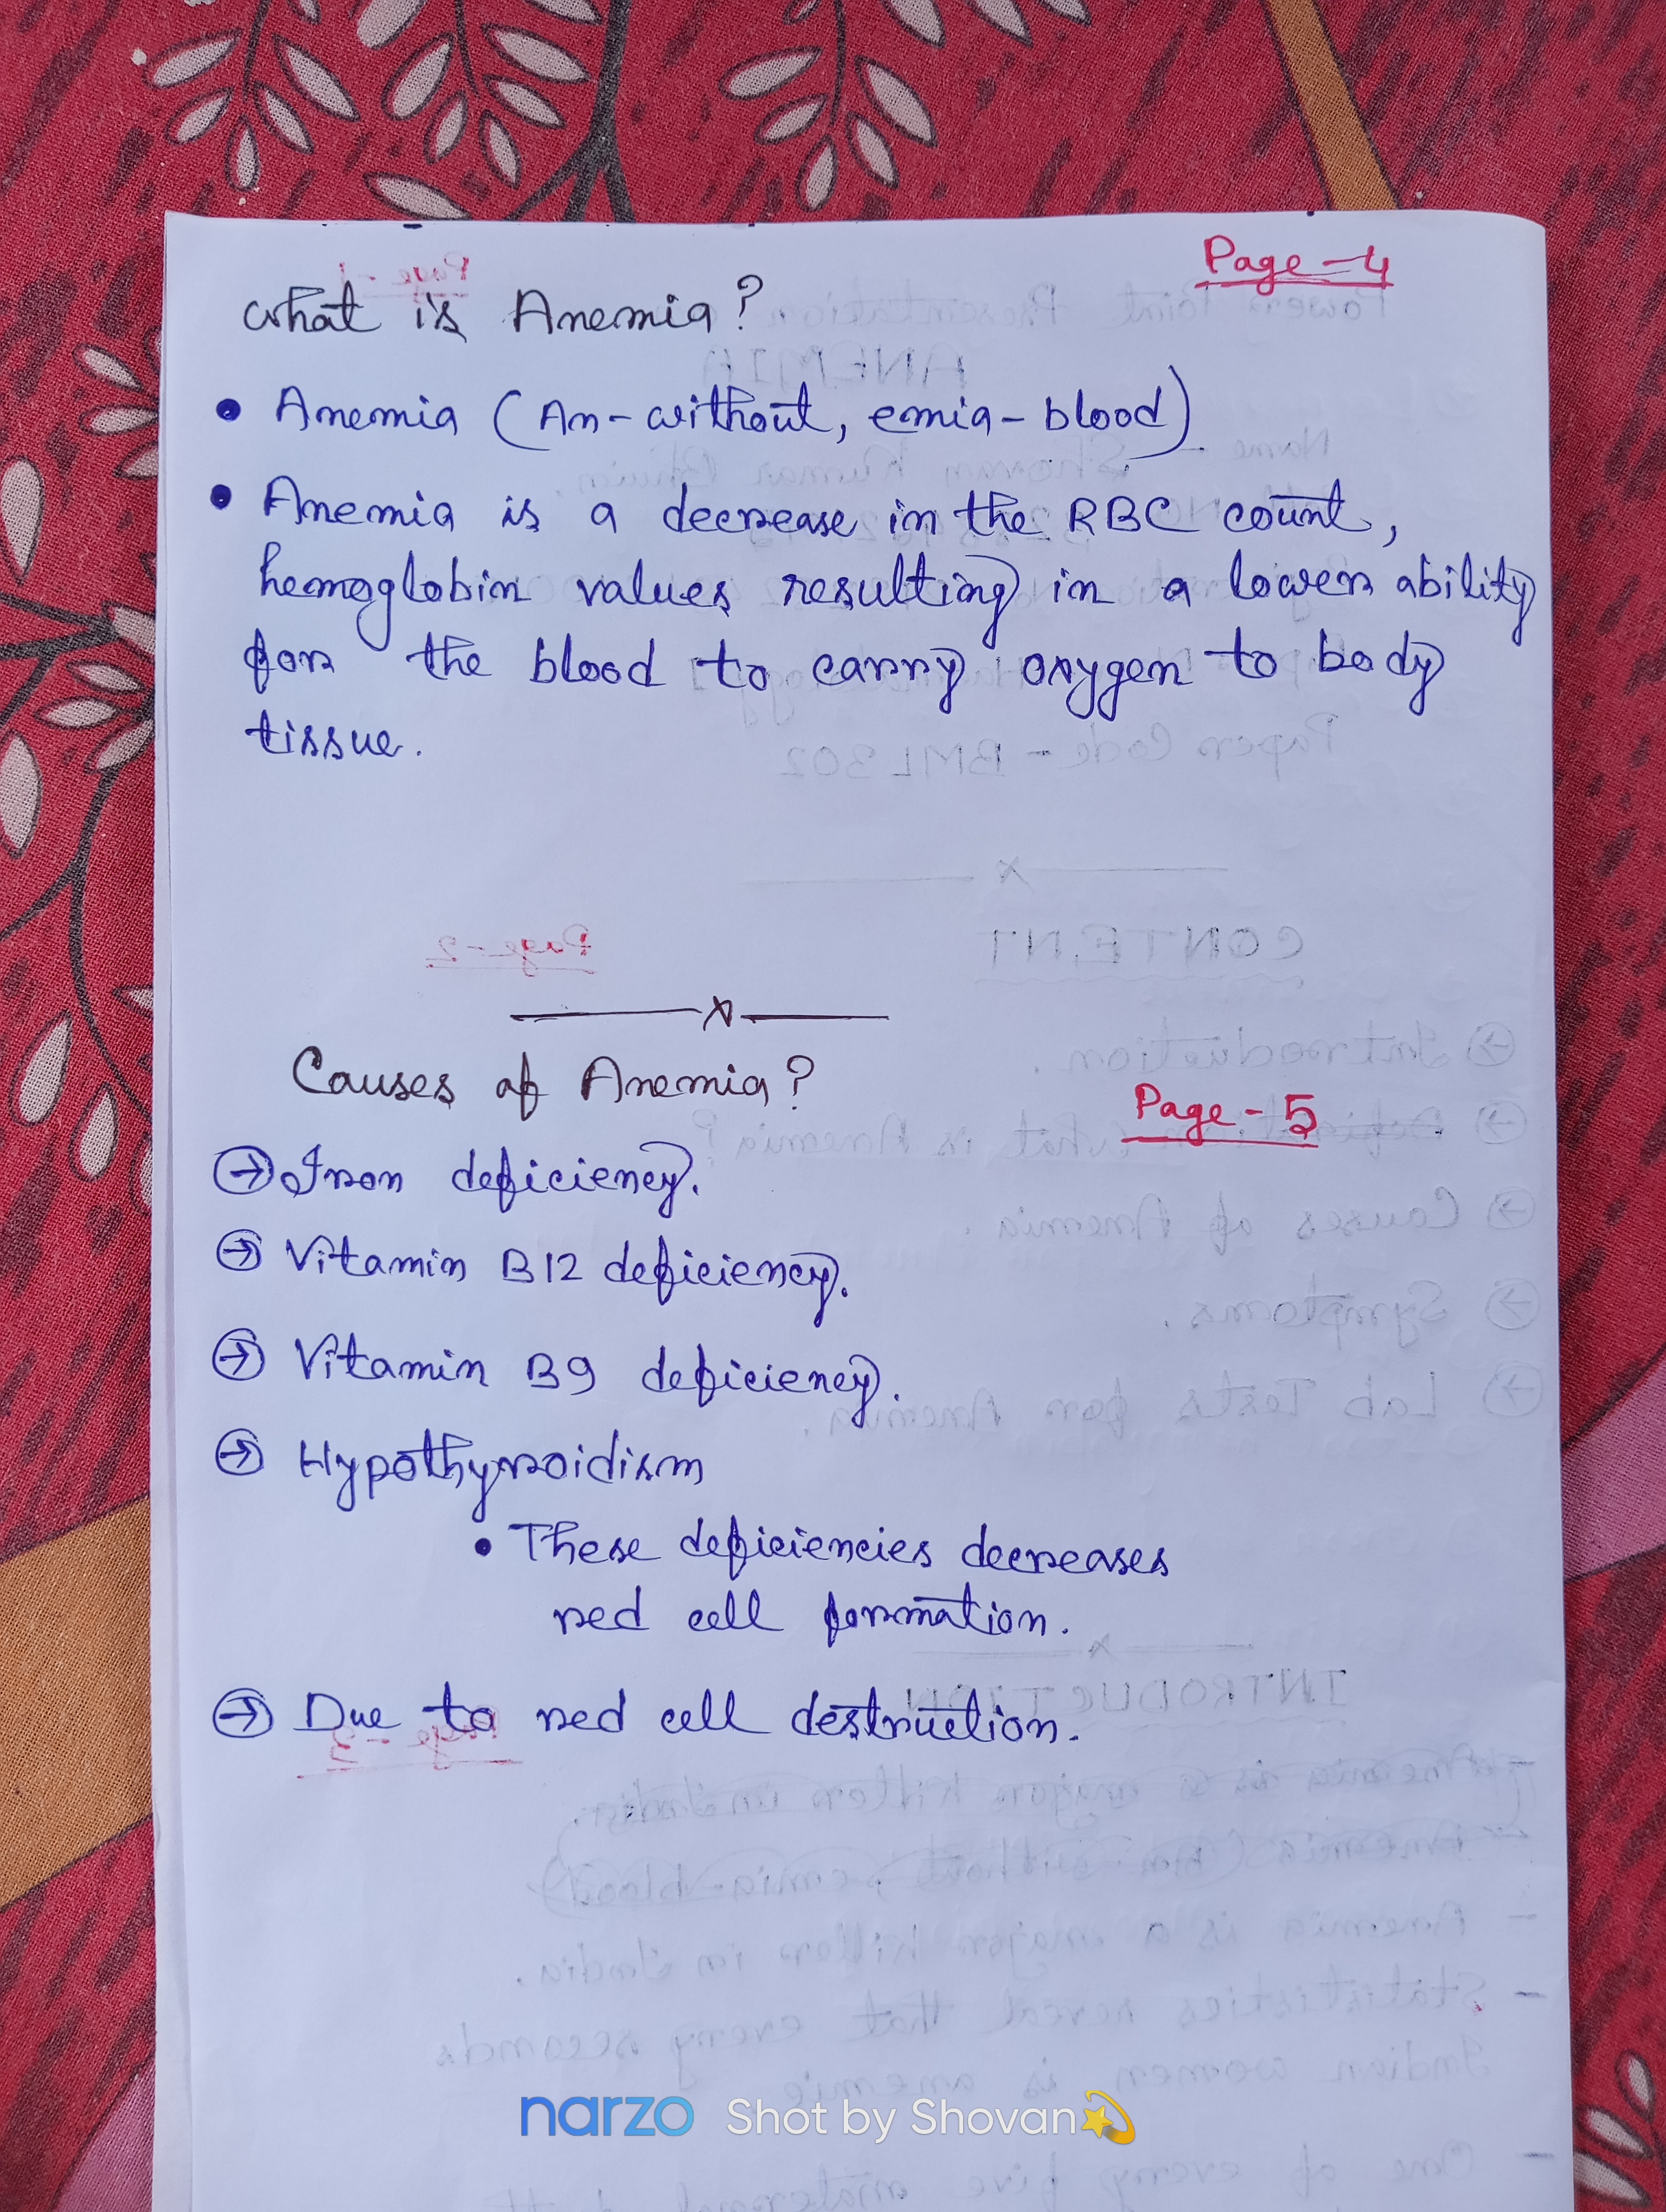 Page-4
What is Anemia?
• Anemia (An-without, emia-blood)
• Anemia is a decrease in the RBC count,
hemoglobin values resulting in a lower ability
for the blood to carry oxygen to body
tissue.
x
Causes of Anemia?
Page-5
→ Iron deficiency.
→ Vitamin B12 deficiency.
→ Vitamin B9 deficiency.
→ Hypothyroidism
• These deficiencies decreases
red cell formation.
→ Due to red cell destruction.
narzo Shot by Shovan💫